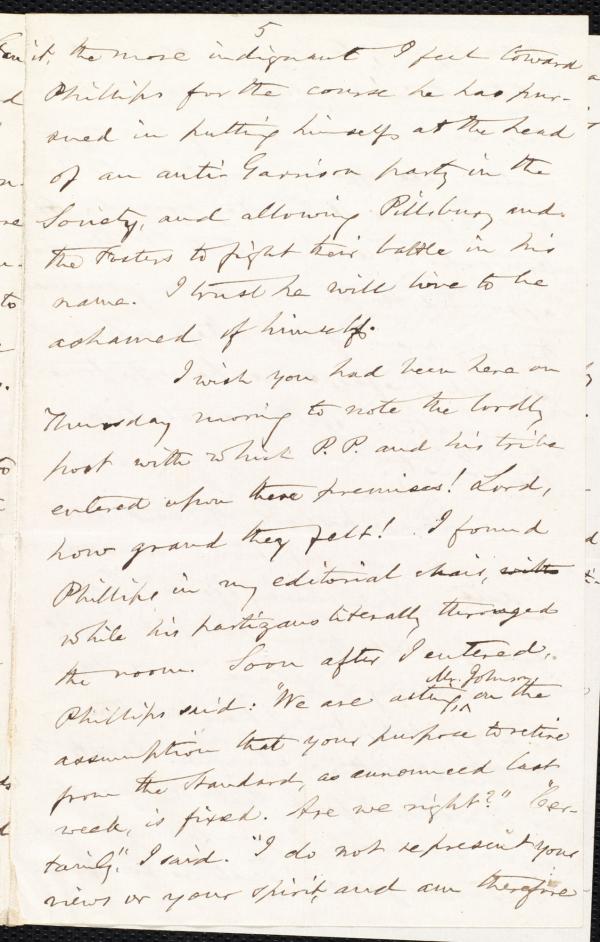 5
it, the more indignant I feel toward
Phillips for the course he has pur-
sued in putting himself at the head
of an anti-Garrison party in the
Society, and allowing Pillsbury and
the Fosters to fight their battle in his
name. I trust he will live to be
ashamed of himself.
I wish you had been here on
Thursday morning to note the lordly
port with which P. P. and his tribe
entered upon these premises! Lord,
how grand they felt! I found
Phillips in my editorial chair, with
while his partizans literally thronged
the room. Soon after I entered,
Mr. Johnson
Phillips said: "We are acting on the
assumption that your purpose to retire
from the Standard, as announced last
week, is fixed. Are we right?" "Cer-
tainly," I said. "I do not represent your
views or your spirit, and am therefore